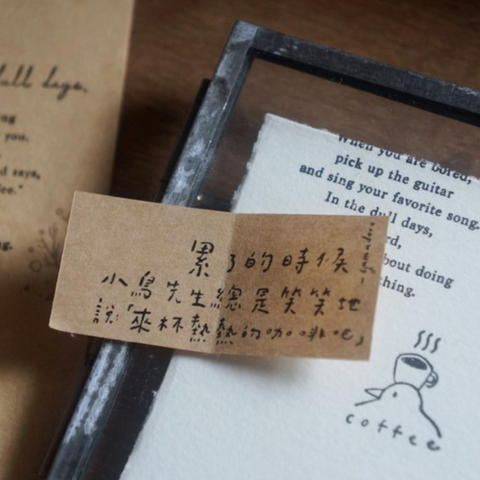 dull days,
you.
said says,
When you are bored,
pick up the guitar
and sing your favorite song.
In the dull days,
about doing
thing.
累了的時候
小鳥先生總是笑笑地
說:來杯熱熱的咖啡吧,
coffee